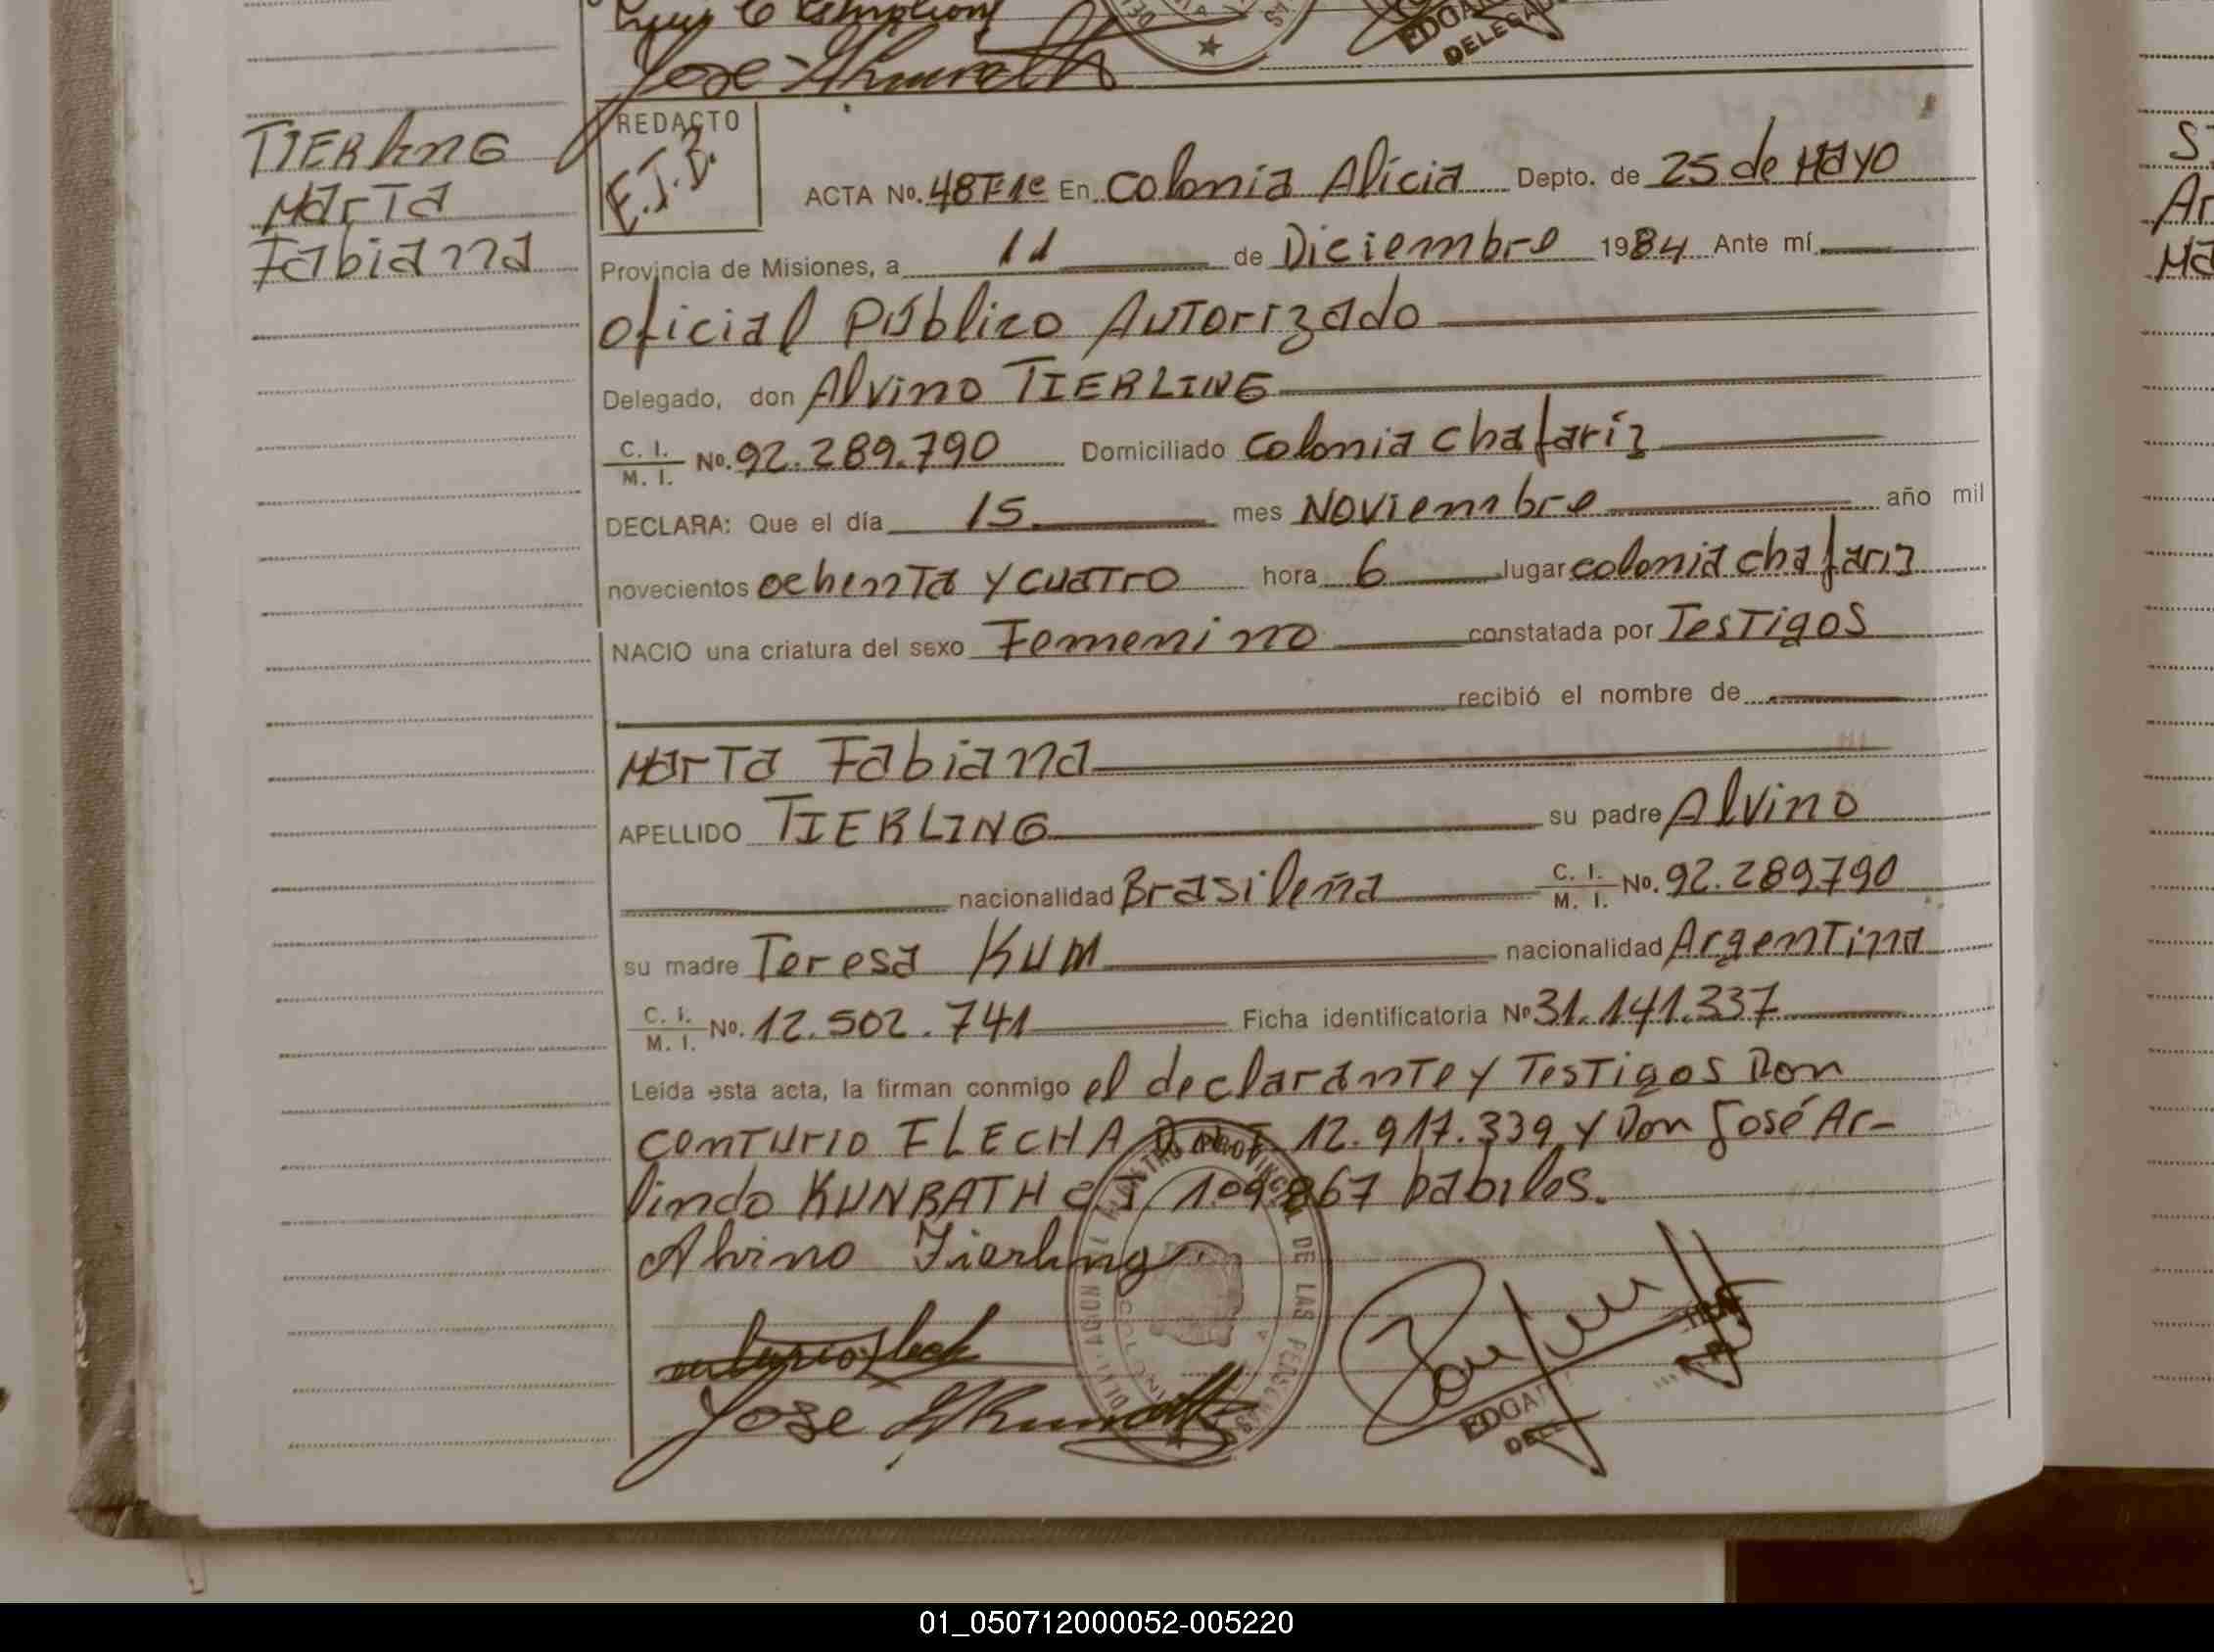 EDGAR
DELEGADO
TIERLING
Marta
Fabiana
REDACTO
E.J.B.
ACTA No. 487-1º En Colonia Alicia Depto. de 25 de Mayo
Provincia de Misiones, a 11 de Diciembre 1984 Ante mí
Oficial Público Autorizado
Delegado, don Alvino TIERLING
C. I. / M. I. No. 92.289.790 Domiciliado Colonia Chafaríz
DECLARA: Que el día 15 mes Noviembre año mil
novecientos ochenta y cuatro hora 6 lugar colonia chafariz
NACIO una criatura del sexo Femenino constatada por Testigos
recibió el nombre de
Marta Fabiana
APELLIDO TIERLING su padre Alvino
nacionalidad Brasileña C. I. / M. I. No. 92.289.790
su madre Teresa KUM nacionalidad Argentina
C. I. / M. I. No. 12.502.741 Ficha identificatoria No 31.141.337
Leída esta acta, la firman conmigo el declarante y Testigos Don
Centurio FLECHA 12.917.339 y Don José Ar-
lindo KUNRATH C.I. 109.867 habiles.
Alvino Tierling
Jose
EDGAR
01_050712000052-005220